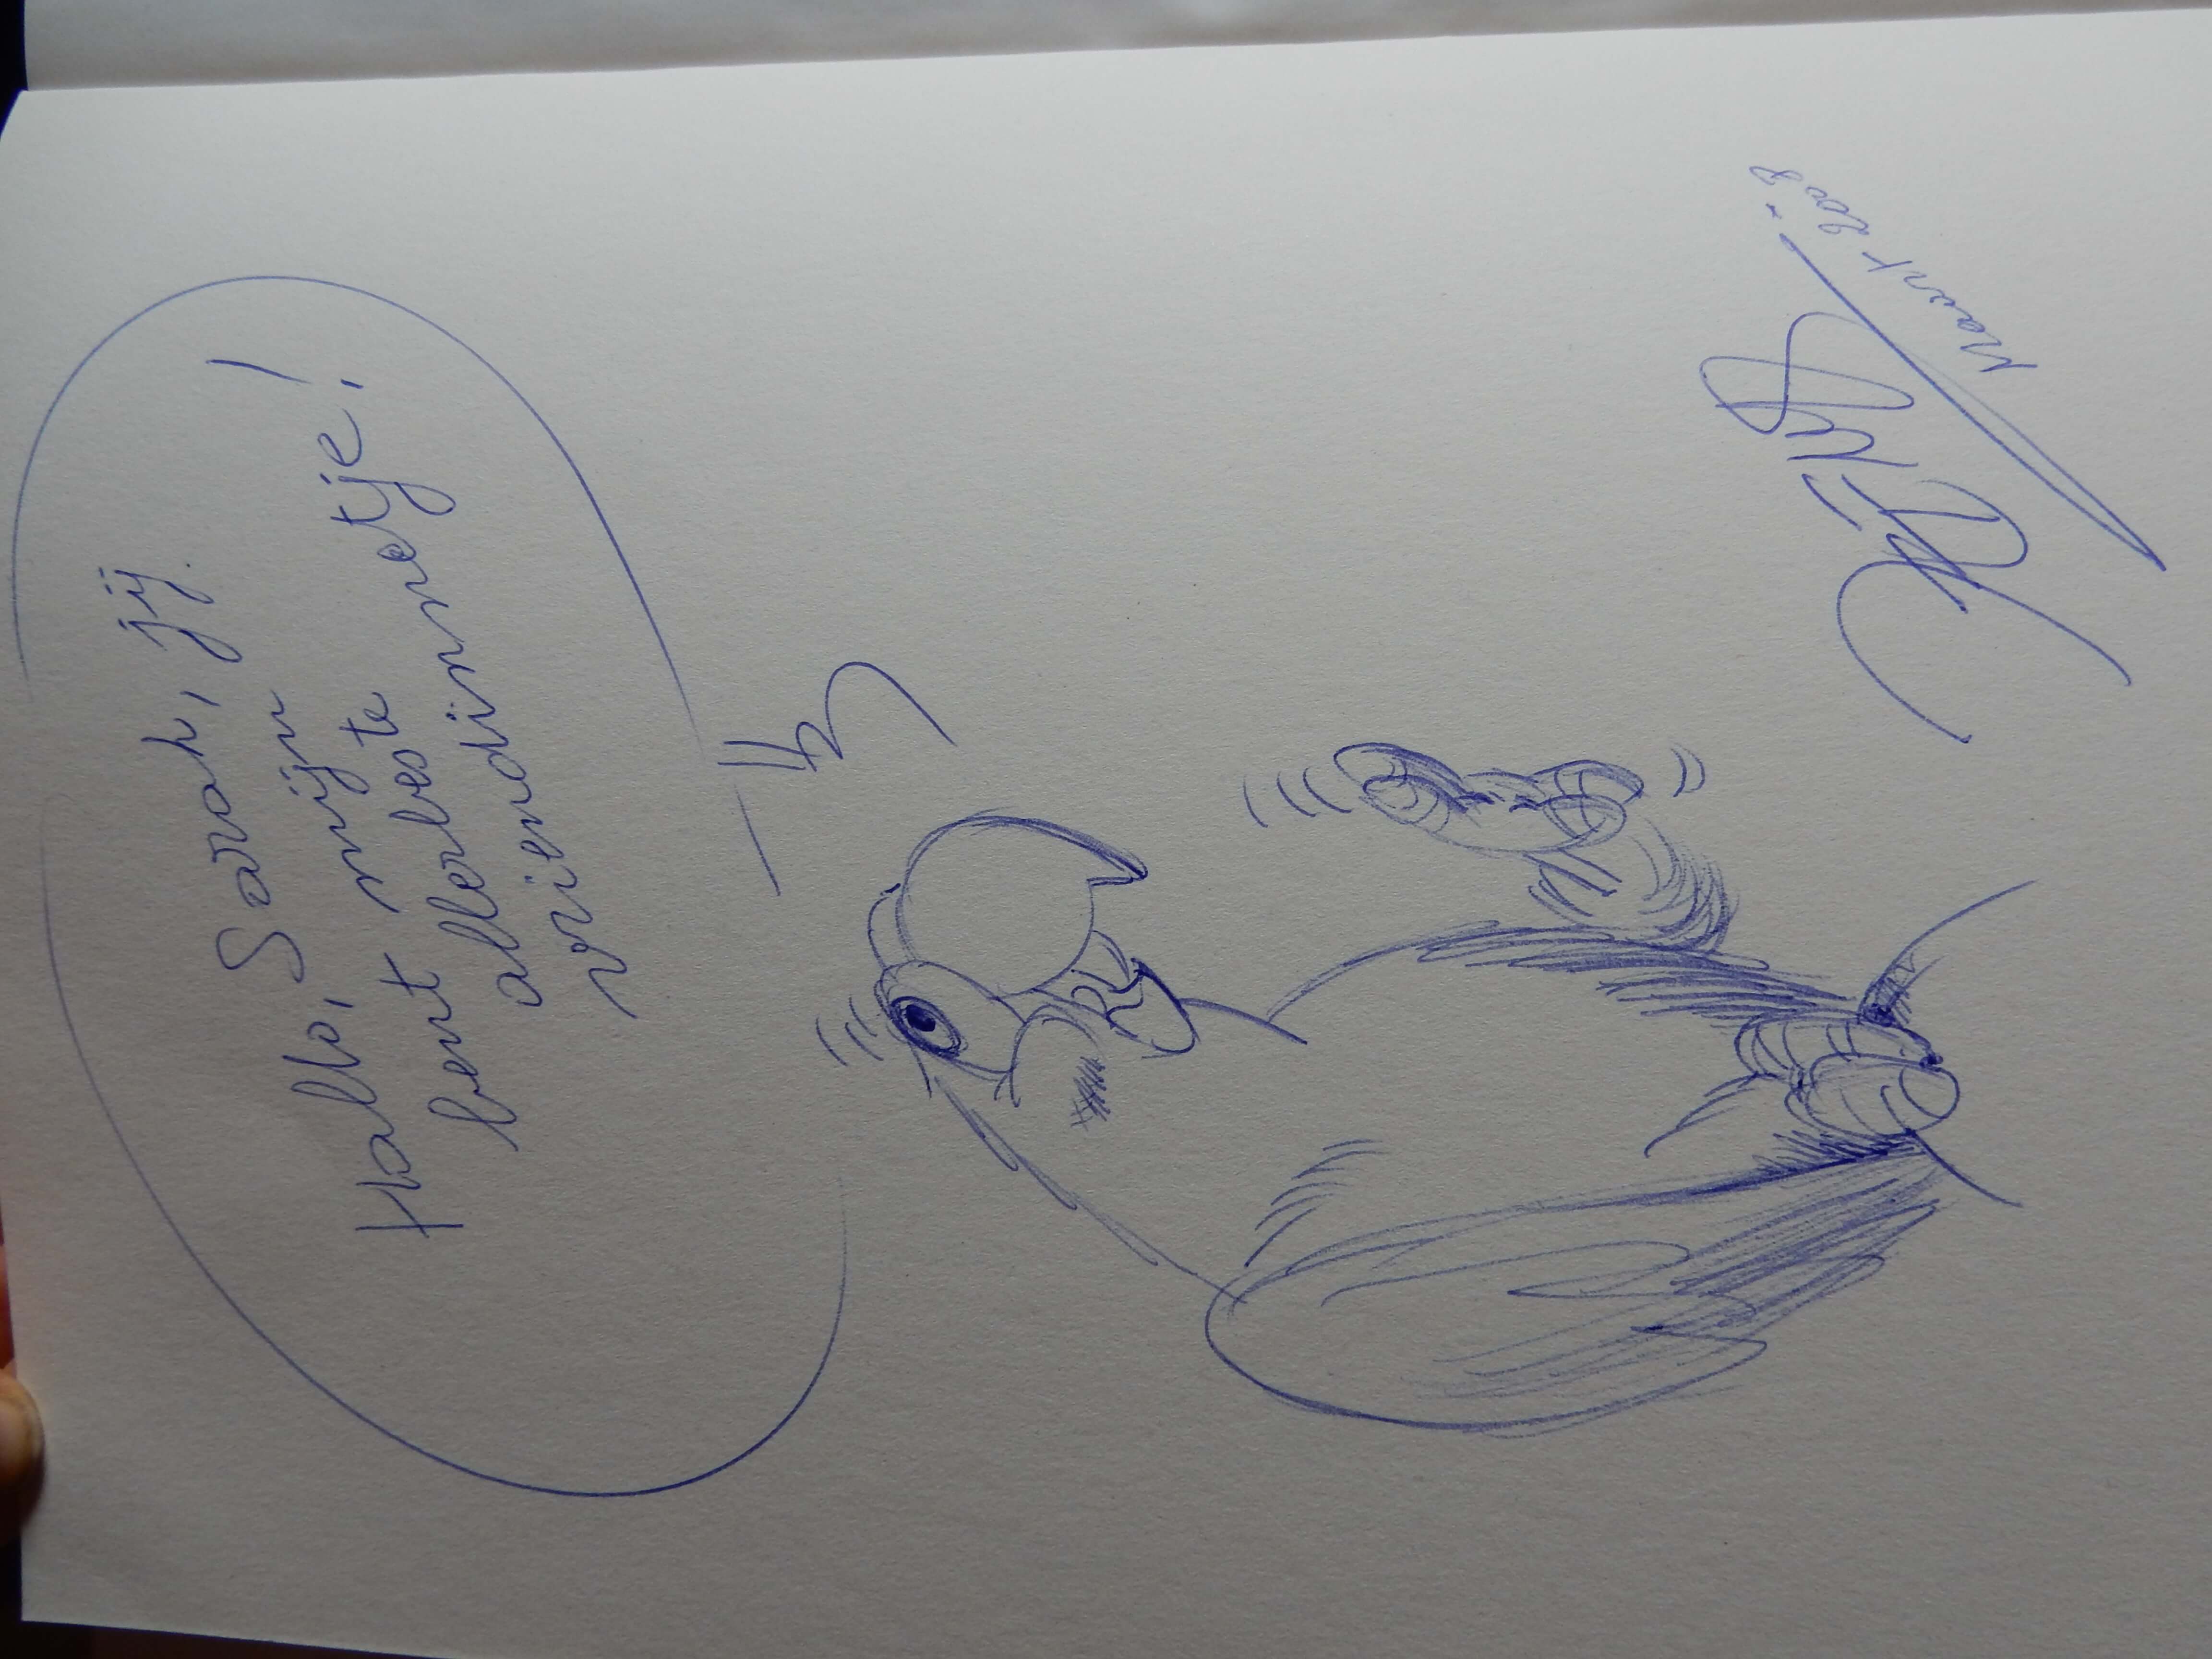 Hallo, Sarah, jij
bent mijn
allerbeste
vriendinnetje!
Maart 2008